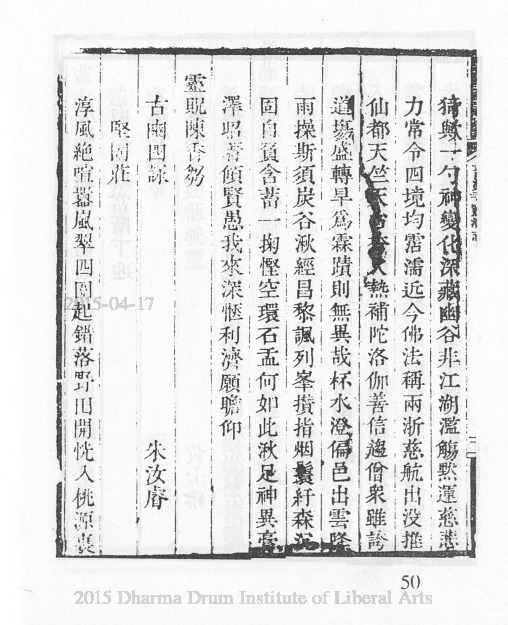 猗歟一勺神變化深藏幽谷非江湖濫觴黙運慈悲
力常令四境均霑濡近今佛法稱兩浙慈航出没推
仙都天竺人熱補陀洛伽善信過僧衆雖誇
道塲盛轉旱爲霖蹟則無異哉杯水澄偏邑出雲隆
雨操斯須炭谷湫經昌黎諷列峯攢指烟鬟紆森沉
固自負含蓄一掬慳空環石盂何如此湫足神異
澤昭著傾賢愚我來深愜利濟願瞻仰
靈貺陳香芻
古幽四詠 朱汝㾕
堅固莊
淳風絶喧囂嵐翠四圍起錯落野田開恍入桃源裏
2015-04-17
50
2015 Dharma Drum Institute of Liberal Arts